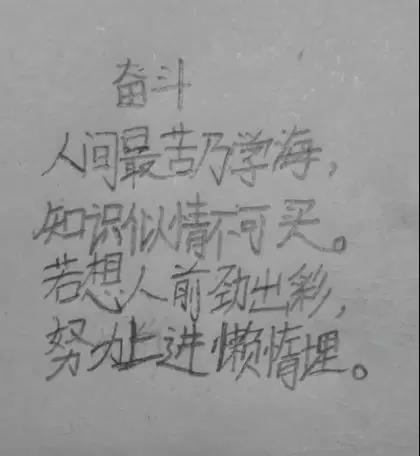 奋斗
人间最苦乃学海，
知识似情不可买。
若想人前劲出彩，
努力上进懒惰埋。